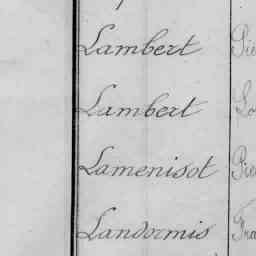 Lambert Pie
Lambert Lo
Lamenisot Pie
Landormis Fra